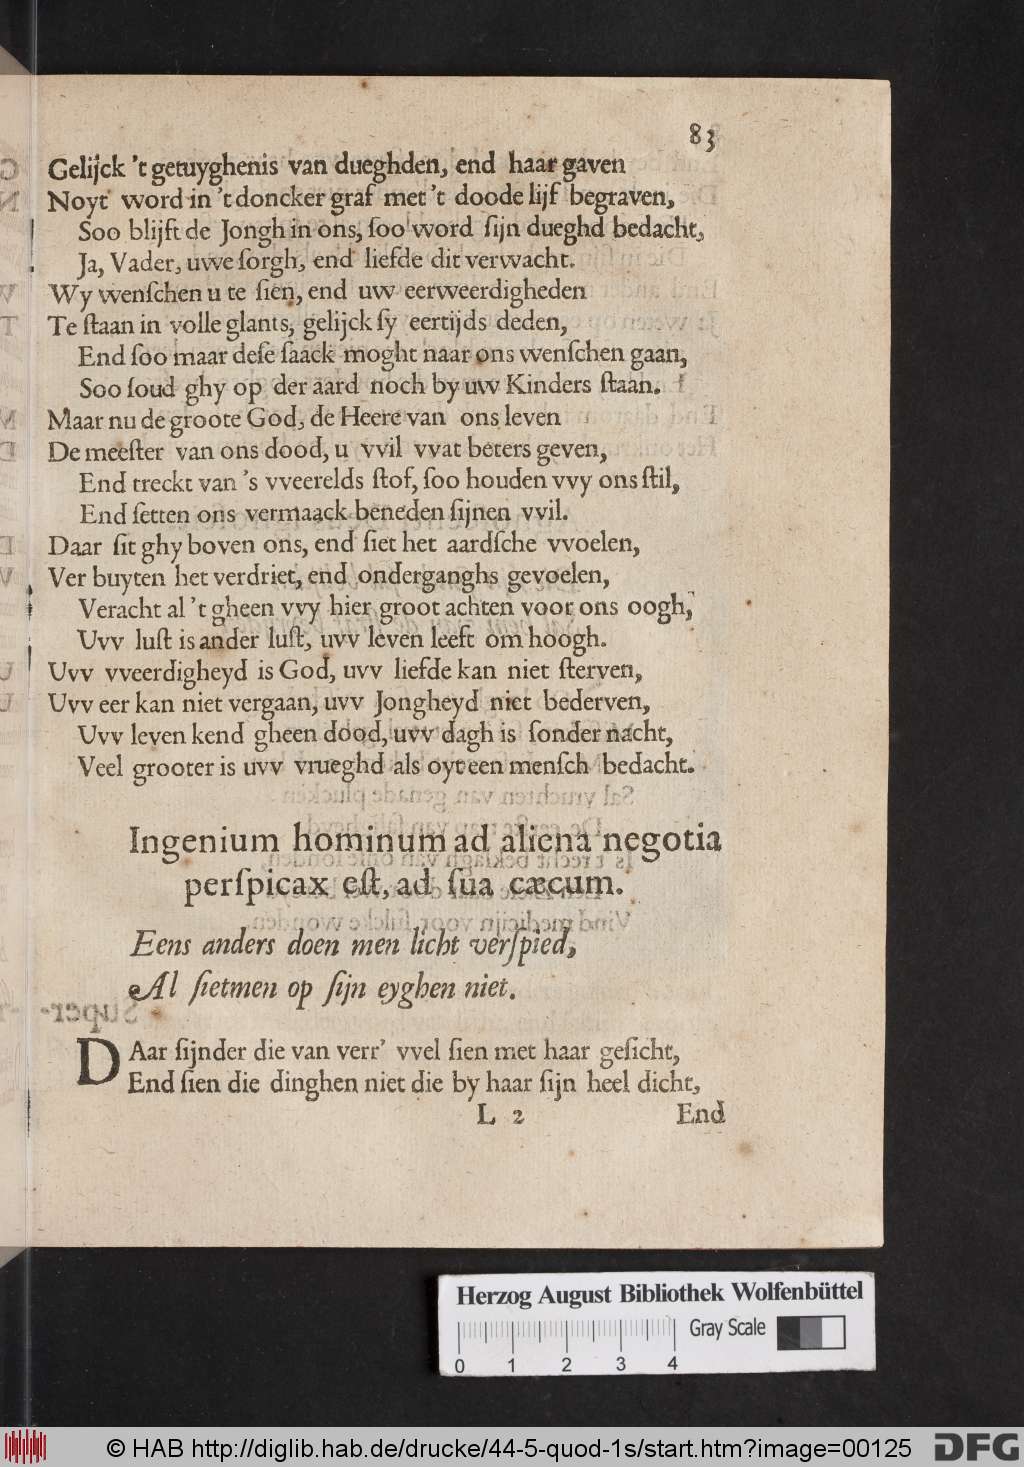 83
Gelijck 't getuyghenis van dueghden, end haar gaven
Noyt word in 't doncker graf met 't doode lijf begraven,
Soo blijft de Jongh in ons, ſoo word ſijn dueghd bedacht,
Ja, Vader, uwe ſorgh, end liefde dit verwacht.
Wy wenſchen u te ſien, end uw eerweerdigheden
Te ſtaan in volle glants, gelijck ſy eertijds deden,
End ſoo maar deſe ſaack moght naar ons wenſchen gaan,
Soo ſoud ghy op der aard noch by uw Kinders ſtaan.
Maar nu de groote God, de Heere van ons leven
De meeſter van ons dood, u vvil vvat beters geven,
End treckt van 's vveerelds ſtof, ſoo houden vvy ons ſtil,
End ſetten ons vermaack beneden ſijnen vvil.
Daar ſit ghy boven ons, end ſiet het aardſche vvoelen,
Ver buyten het verdriet, end onderganghs gevoelen,
Veracht al 't gheen vvy hier groot achten voor ons oogh,
Uvv luſt is ander luſt, uvv leven leeft om hoogh.
Uvv vveerdigheyd is God, uvv liefde kan niet ſterven,
Uvv eer kan niet vergaan, uvv Jongheyd niet bederven,
Uvv leven kend gheen dood, uvv dagh is ſonder nacht,
Veel grooter is uvv vrueghd als oyt een menſch bedacht.
Ingenium hominum ad aliena negotia
perſpicax eſt, ad ſua cæcum.
Eens anders doen men licht verſpied,
Al ſietmen op ſijn eyghen niet.
DAar ſijnder die van verr' vvel ſien met haar geſicht,
End ſien die dinghen niet die by haar ſijn heel dicht,
L 2 End
Herzog August Bibliothek Wolfenbüttel
Gray Scale
0 1 2 3 4
© HAB http://diglib.hab.de/drucke/44-5-quod-1s/start.htm?image=00125
DFG